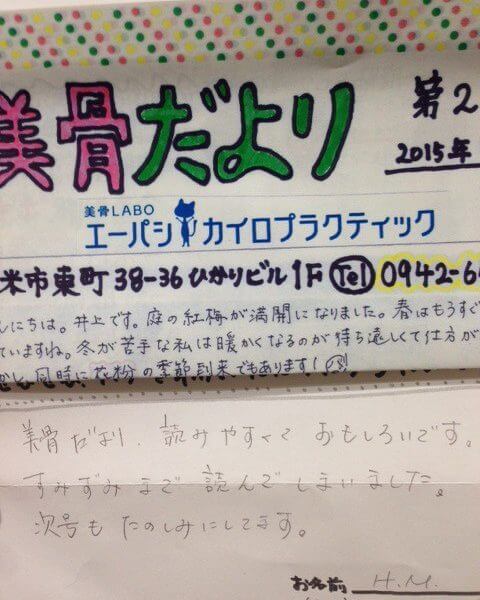 美骨だより
第2
2015年
美骨LABO
エーパシ カイロプラクティック
米市東町38-36ひかりビル1F Tel 0942-6
んにちは。井上です。庭の紅梅が満開になりました。春はもうすぐ
ていますね。冬が苦手な私は暖かくなるのが待ち遠しくて仕方が
し、同時に花粉の季節到来でもあります!
美骨だより、読みやすくて おもしろいです。
すみずみまで 読んでしまいました。
次号も たのしみにしてます。
お名前 H.M.